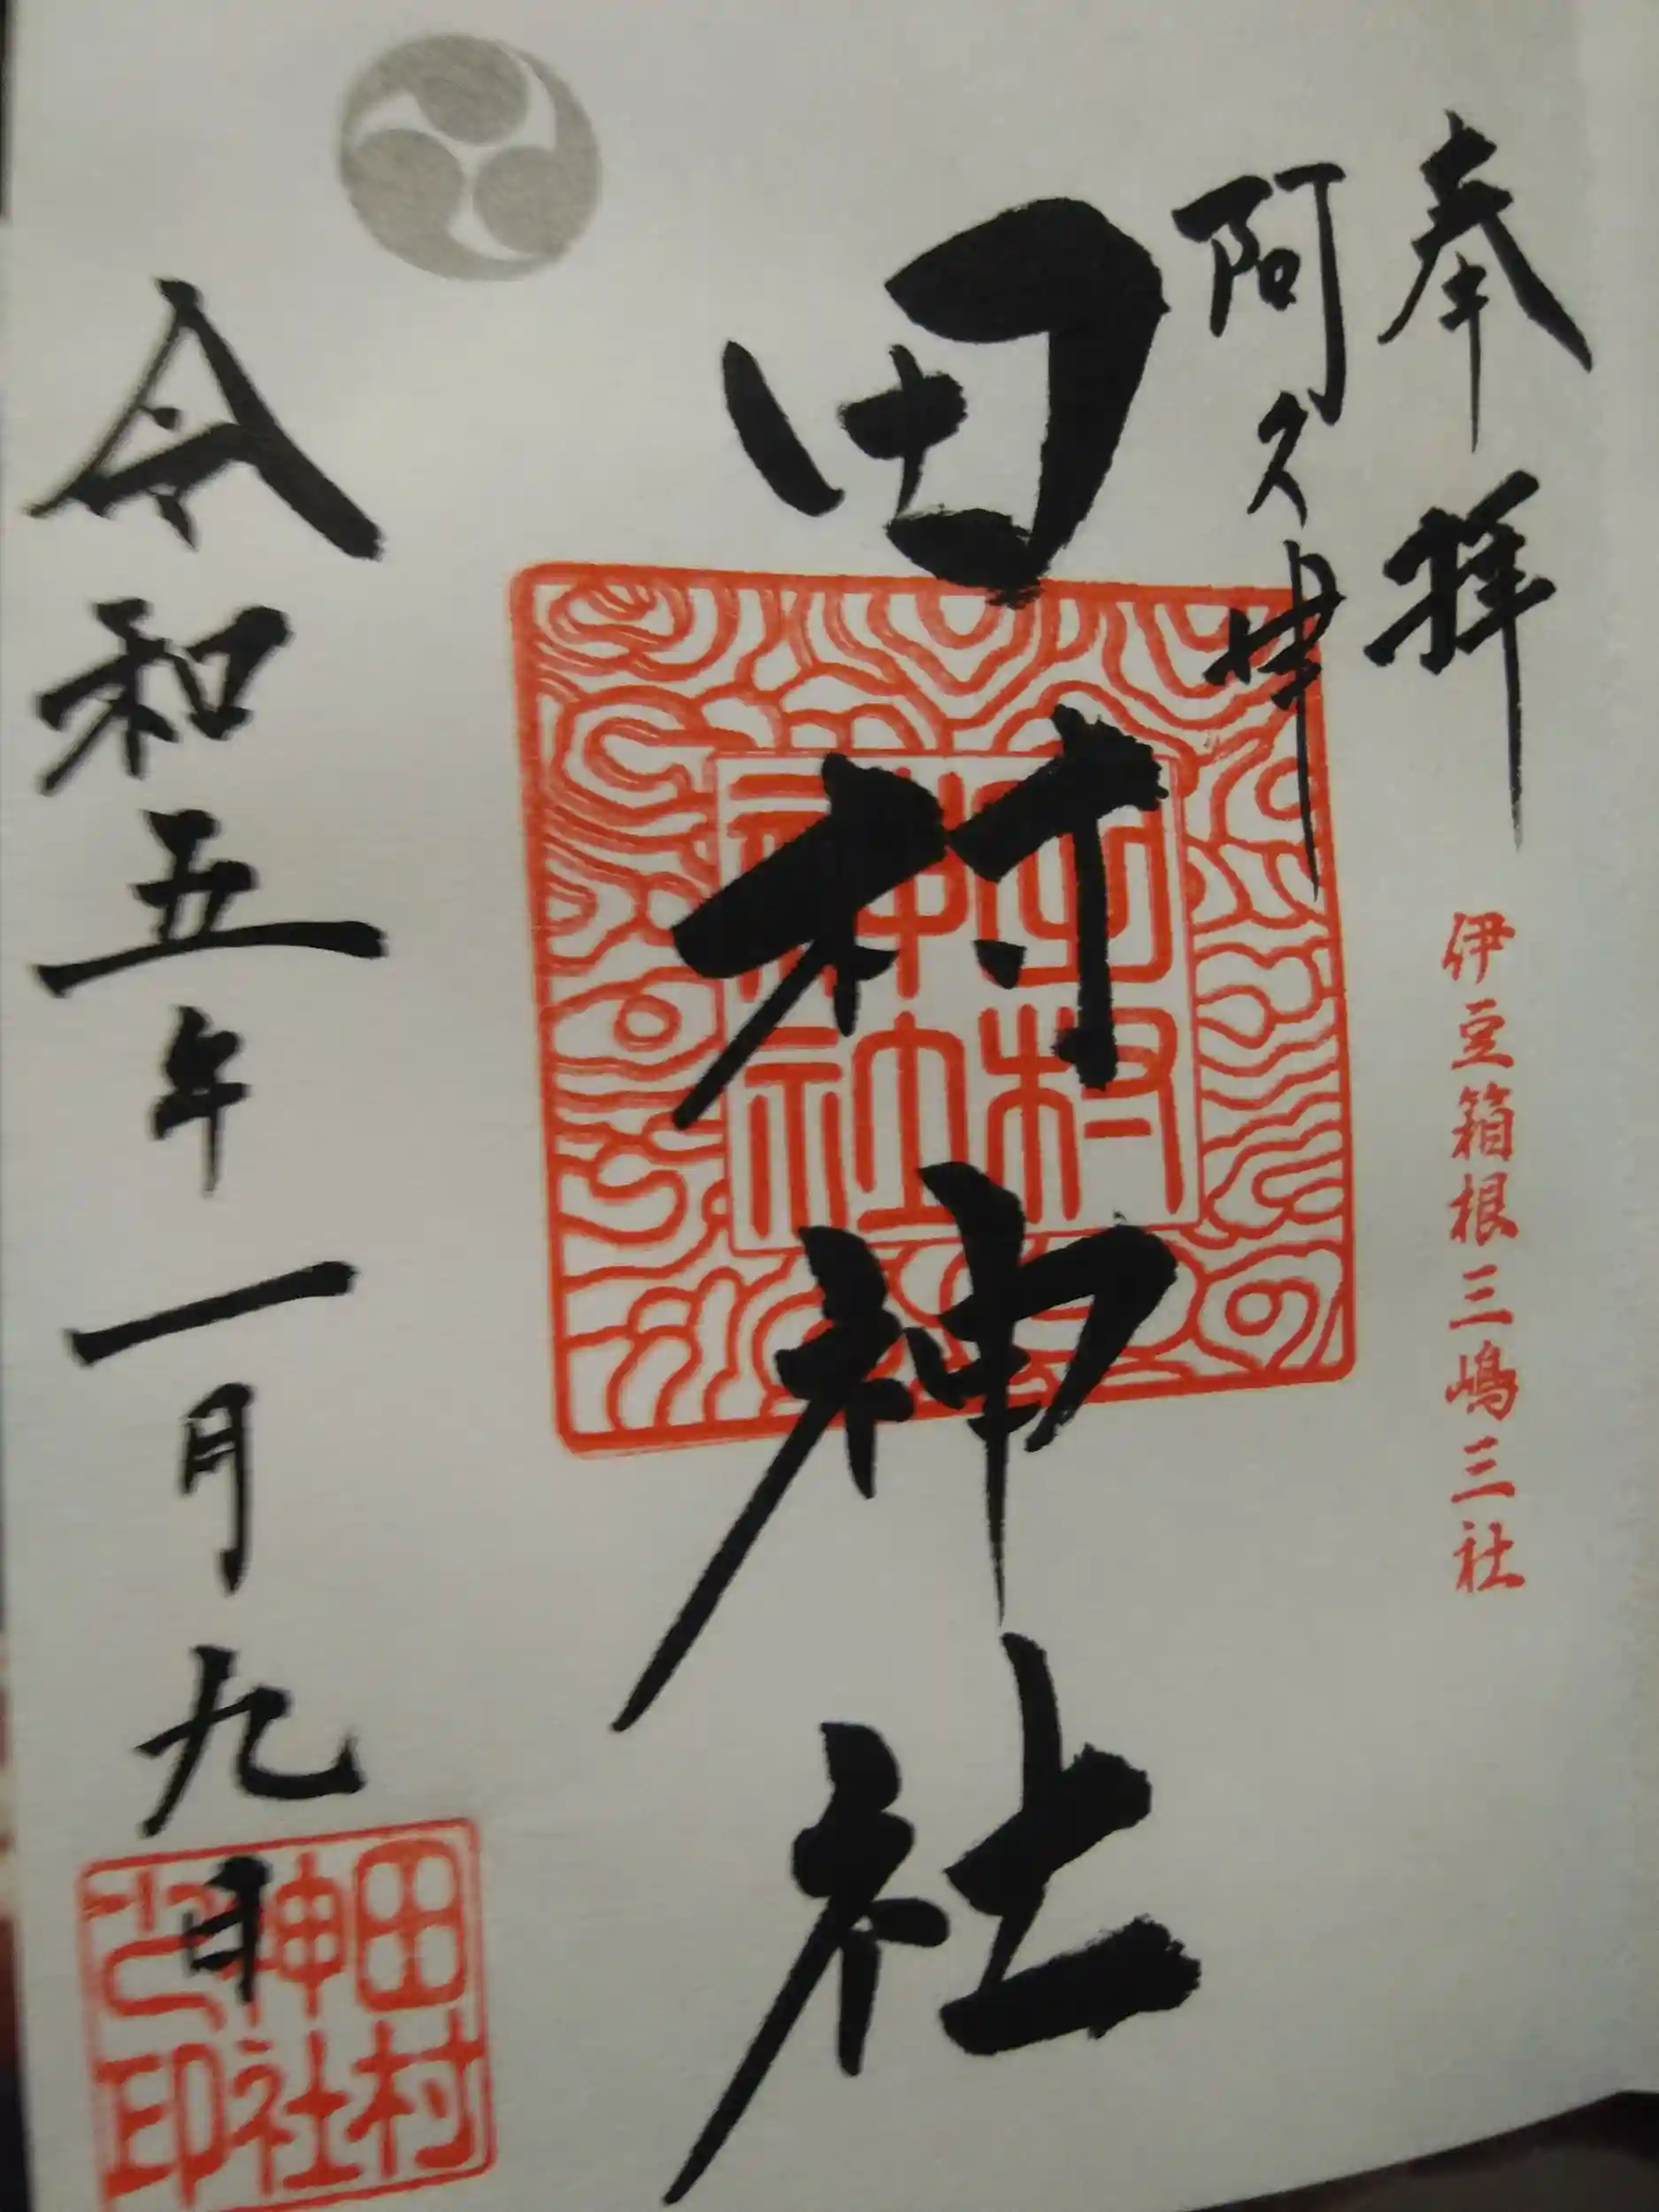 奉拝
伊豆箱根三嶋三社
阿久津
田村神社
田村神社
令和五年一月九日
田村神社之印